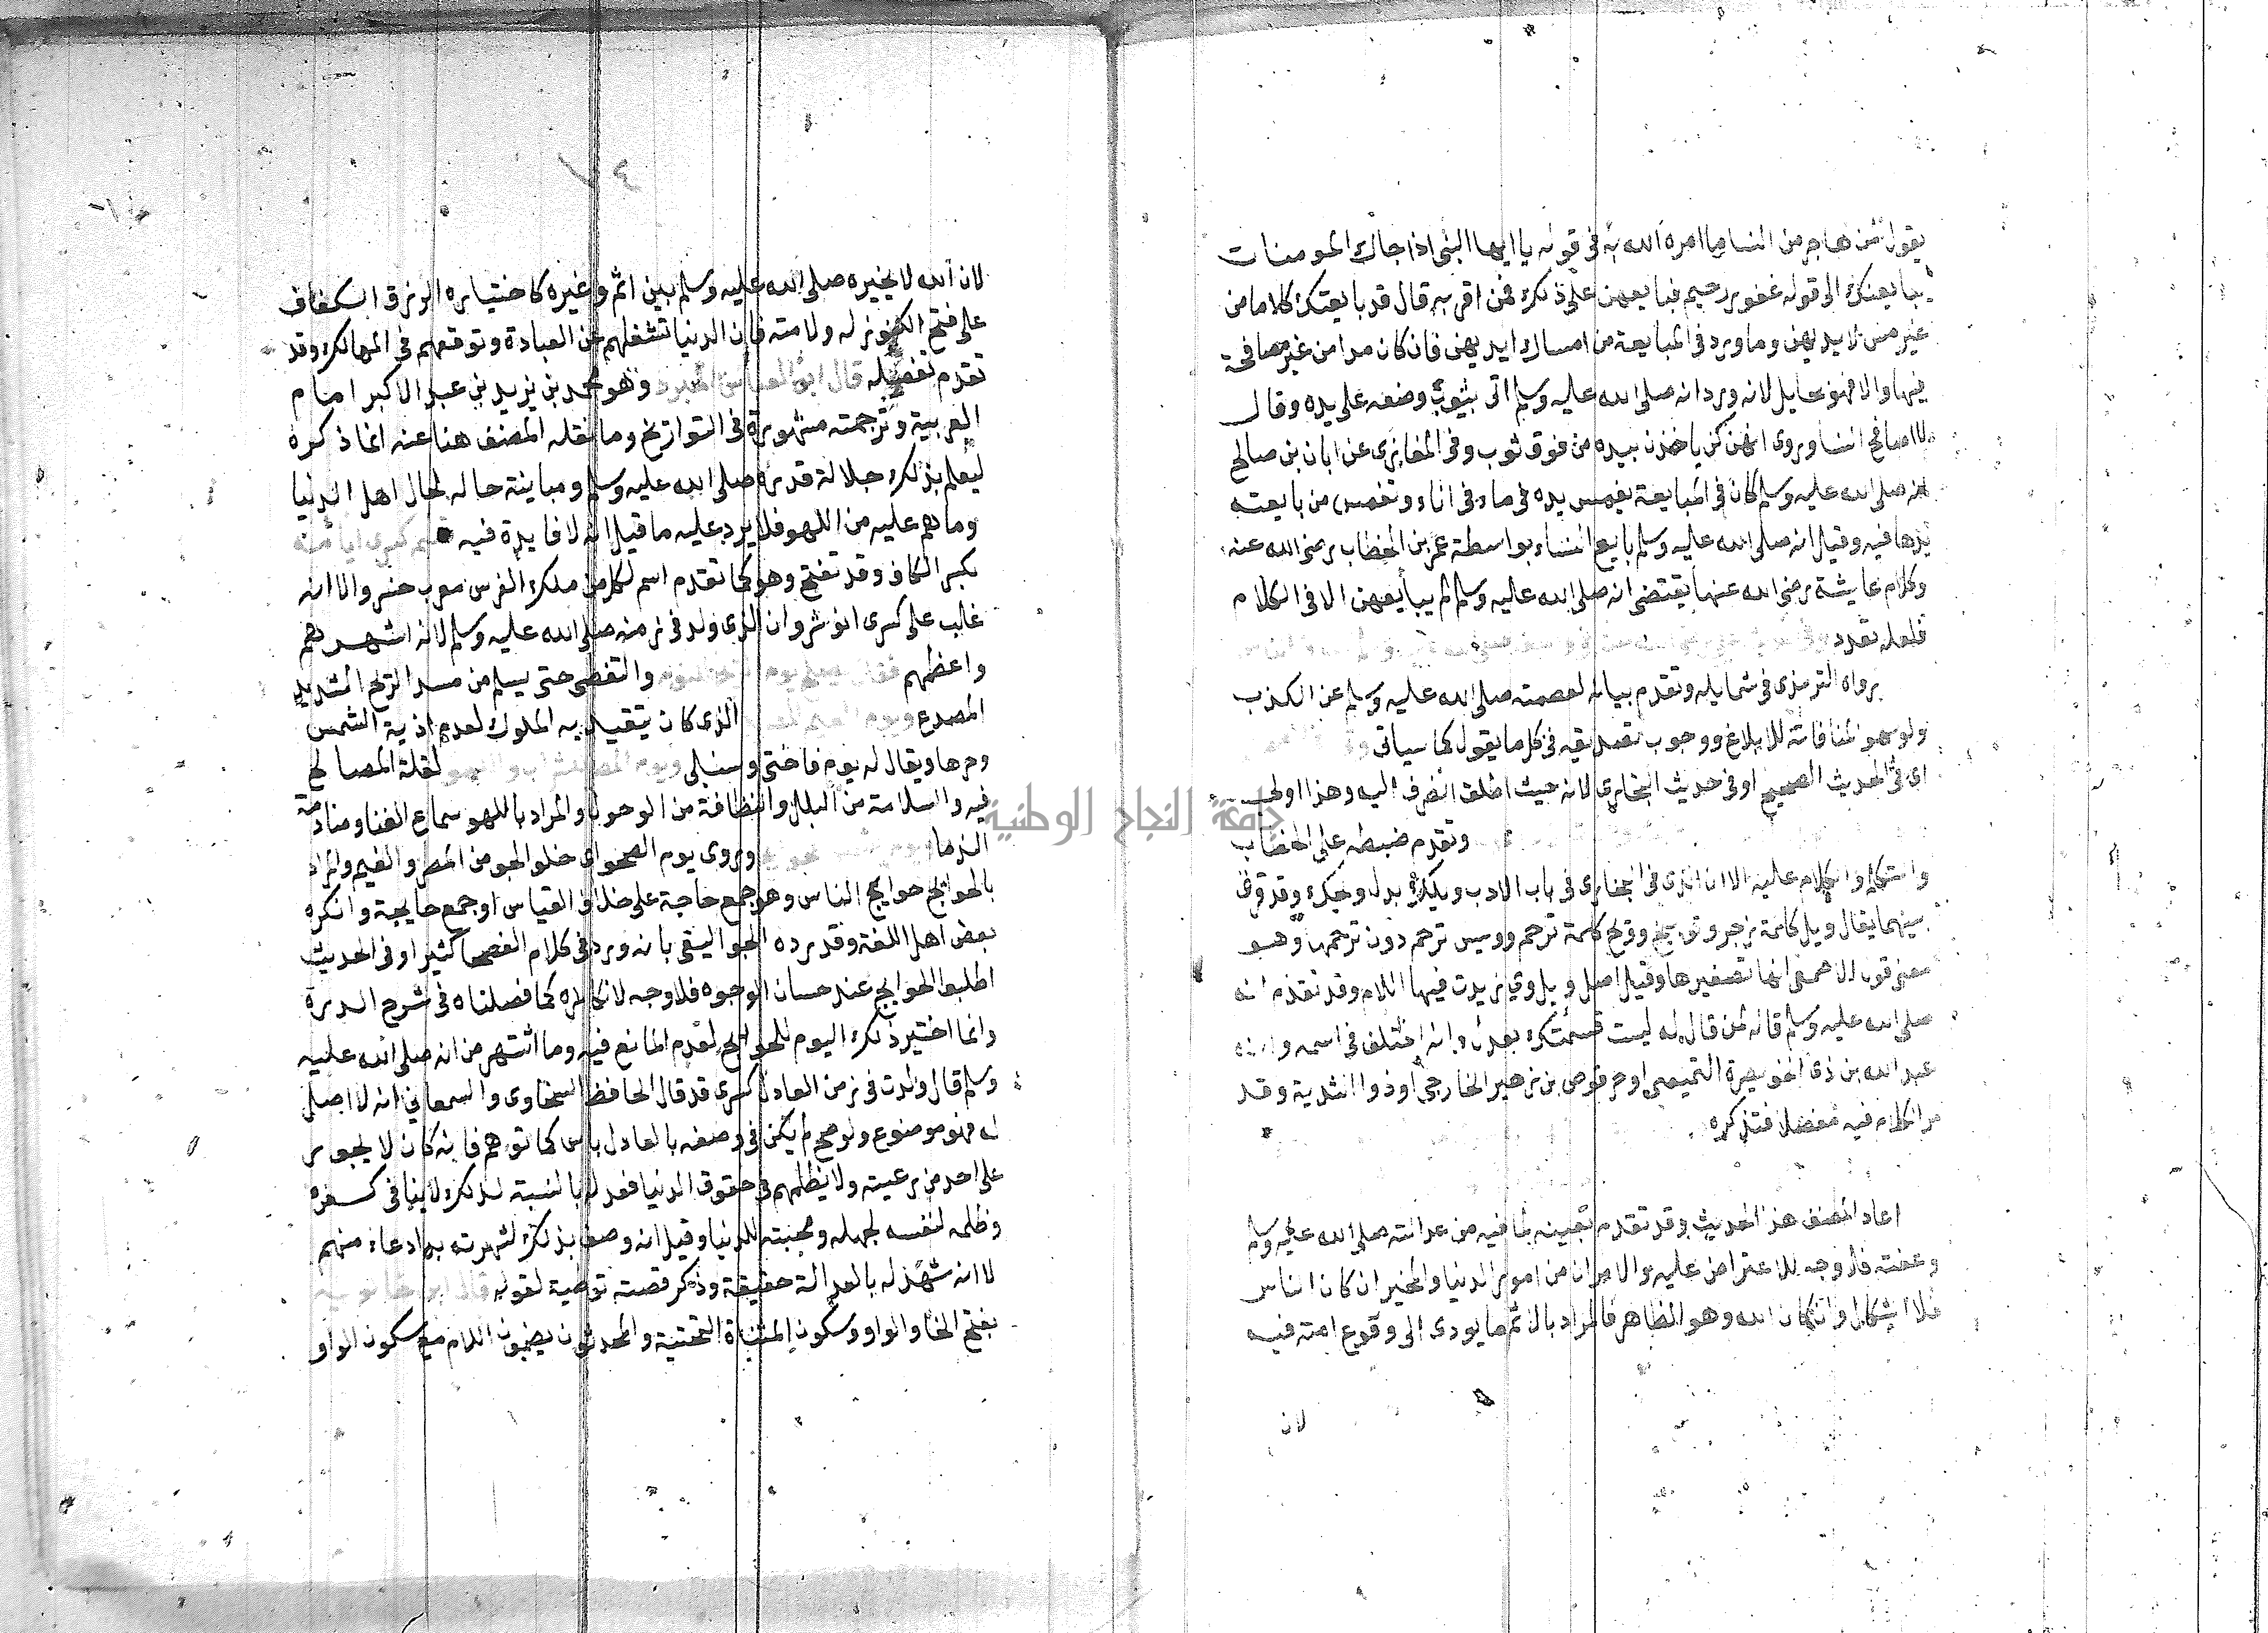 يقول لمن هاجر من النسا ما امره الله به في قوله يا ايها النبي اذا جاك المومنات
يبايعنك الى قوله غفور رحيم فبايعهن على ذلك فمن اقر به قال قد بايعتك كلاما من
غير مس لايديهن وما ورد في المبايعة من امساك ايديهن فان كان مرا من غير مصافحة
فيها والا فهو بحايل لانه ورد انه صلى الله عليه وسلم اتى بثوب وضعه على يده وقال
لا اصافح النسا وروى انهن كن ياخذن بيده من فوق ثوب وفي المغازي عن ابان بن صالح
انه صلى الله عليه وسلم كان في المبايعة يغمس يده في ماء في اناء وتغمس من بايعته
يدها فيه وقيل انه صلى الله عليه وسلم بايع النساء بواسطة عمر بن الخطاب رضي الله عنه
وكلام عايشة رضي الله عنها يقتضي انه صلى الله عليه وسلم لم يبايعهن الا في الكلام
فلعله تعدد
رواه الترمذي في شمايله وتقدم بيانه لعصمته صلى الله عليه وسلم عن الكذب
ولو سهوا لمنافاته للابلاغ ووجوب تصديقه في كل ما يقول كما سياتي
اي في الحديث الصحيح او في حديث البخاري لانه حيث اطلق انصرف اليه وهذا اولى
وتقدم ضبطه على الخطاب
والتكلم والكلام عليه الا ان الذي في البخاري في باب الادب ويلك بدل ويحك وقد فرق
بينهما يقال ويل كلمة زجر وتوبيخ وويح كلمة ترحم وويس ترحم دون ترحمها وهو
معنى قول الاصمعي انها تصغيرها وقيل اصل ويل وي زيدت فيها اللام وقد تقدم انه
صلى الله عليه وسلم قاله لمن قال له ليست قسمتك بعدل وانه اختلف في اسمه وانه
عبد الله بن ذي الخويصرة التميمي او حرقوص بن زهير الخارجي او ذو الثدية وقد
مر الكلام فيه مفصلا فتذكره
اعاد المصنف هذا الحديث وقد تقدم بعينه لما فيه من عدالته صلى الله عليه وسلم
وعفته فلا وجه للاعتراض عليه والامران من امور الدنيا والمخير ان كان الناس
فلا اشكال وان كان الله وهو الظاهر فالمراد بالاثم ما يودى الى وقوع امته فيه
لان
٤٧
لان الله لا يخيره صلى الله عليه وسلم بين اثم وغيره كاختياره الرزق الكفاف
على فتح الكنوز له ولامته فان الدنيا تشغلهم عن العبادة وتوقعهم في المهالك وقد
تقدم تفصيله قال ابو العباس المبرد وهو محمد بن يزيد بن عبد الاكبر امام
العربية وترجمته مشهورة في التواريخ وما نقله المصنف هنا عنه انما ذكره
ليعلم بذلك جلالة قدره صلى الله عليه وسلم ومباينة حاله لحال اهل الدنيا
وما هم عليه من اللهو فلا يرد عليه ما قيل انه لا فايدة فيه قسم كسرى ايامه
بكسر الكاف وقد تفتح وهو كما تقدم اسم لكل من ملك الفرس معرب خسرو الا انه
غالب على كسرى انو شروان الذي ولد في زمنه صلى الله عليه وسلم لانه اشهرهم
واعظمهم فقال يصلح يوم الريح للنوم والتغطى حتى يسلم من مس الريح الشديد
المصدع ويوم الغيم للصيد الذي كان يتقيد به الملوك لعدم اذية الشمس
وحرها ويقال له يوم فاختي وسنبلي ويوم المطر للشراب واللهو لقلة المصالح
فيه والسلامة من البلل والنظافة من الوحول والمراد باللهو سماع الغنا ومنادمة
الندما ويوم الشمس للحوايج ويروى يوم الصحو اى خلو الجو من المطر والغيم والمراد
بالحوايج حوايج الناس وهو جمع حاجة على خلاف القياس او جمع حايجة وانكره
بعض اهل اللغة وقد رده الجواليقي بانه ورد في كلام الفصحا كثيرا وفي الحديث
اطلبوا الحوايج عند حسان الوجوه فلا وجه لانكاره كما فصلناه في شرح الدرة
وانما اختير ذلك اليوم للحوايج لعدم المانع فيه وما اشتهر من انه صلى الله عليه
وسلم قال ولدت في زمن العادل كسرى قد قال الحافظ السخاوى والسمعاني انه لا اصل
له فهو موضوع ولو صح لم يكن في وصفه بالعادل باس كما توهم فانه كان لا يجور
على احد من رعيته ولا يظلمهم في حقوق الدنيا فعدله بالنسبة لذلك لا ينافي كفره
وظلمه لنفسه لجهله ومحبته للدنيا وقيل انه وصف بذلك لشهرته به وادعاء منهم
لا انه شهد له بالعدالة حقيقة وذكر قصته توصية لقوله قال ابن خالويه
بفتح الخا والواو وسكون المثناة التحتية والمحدثون يضمون اللام مع سكون الواو
جامعة النجاح الوطنية